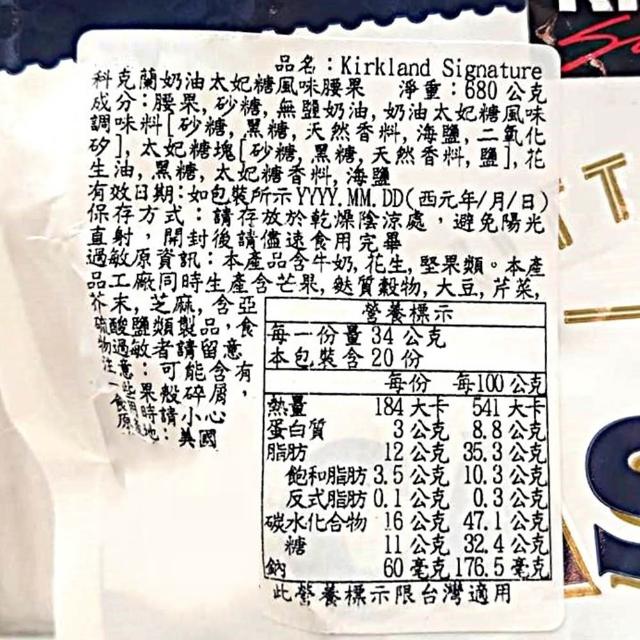 品名：Kirkland Signature
科克蘭奶油太妃糖風味腰果 淨重：680公克
成分：腰果, 砂糖, 無鹽奶油, 奶油太妃糖風味
調味料[砂糖, 黑糖, 天然香料, 海鹽, 二氧化
矽], 太妃糖塊[砂糖, 黑糖, 天然香料, 鹽], 花
生油, 黑糖, 太妃糖香料, 海鹽
有效日期：如包裝所示YYYY.MM.DD(西元年/月/日)
保存方式：請存放於乾燥陰涼處，避免陽光
直射，開封後請儘速食用完畢
過敏原資訊：本產品含牛奶, 花生, 堅果類。本產
品工廠同時生產含芒果, 麩質穀物, 大豆, 芹菜,
芥末, 芝麻, 含亞
硫酸鹽類製品, 食
物過敏者請留意
注意：可能含有
一些果殼碎屑，
食用時請小心
原產地：美國
營養標示
每一份量 34 公克
本包裝含 20 份
每份 每100公克
熱量 184 大卡 541 大卡
蛋白質 3 公克 8.8 公克
脂肪 12 公克 35.3 公克
飽和脂肪 3.5 公克 10.3 公克
反式脂肪 0.1 公克 0.3 公克
碳水化合物 16 公克 47.1 公克
糖 11 公克 32.4 公克
鈉 60 毫克 176.5 毫克
此營養標示限台灣適用